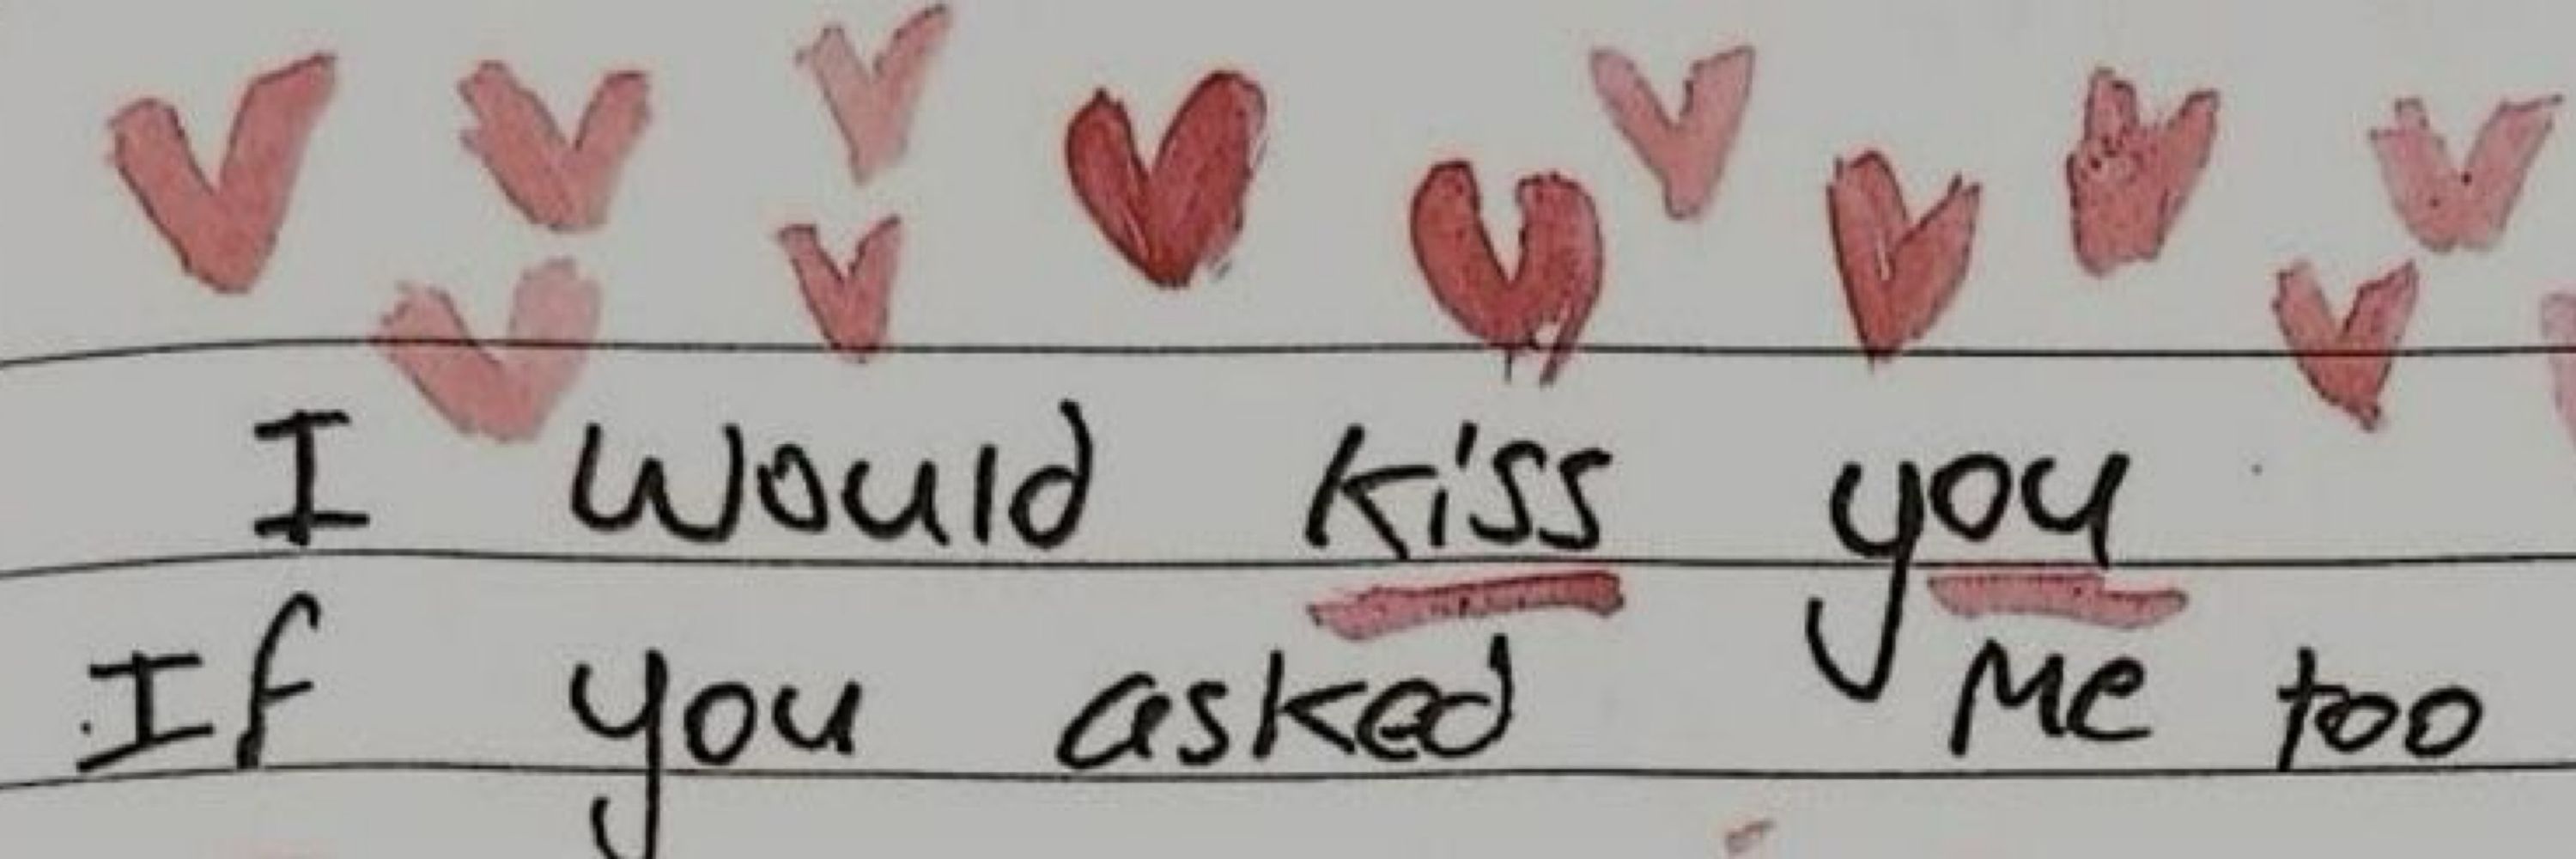 I would kiss you
If you asked me too